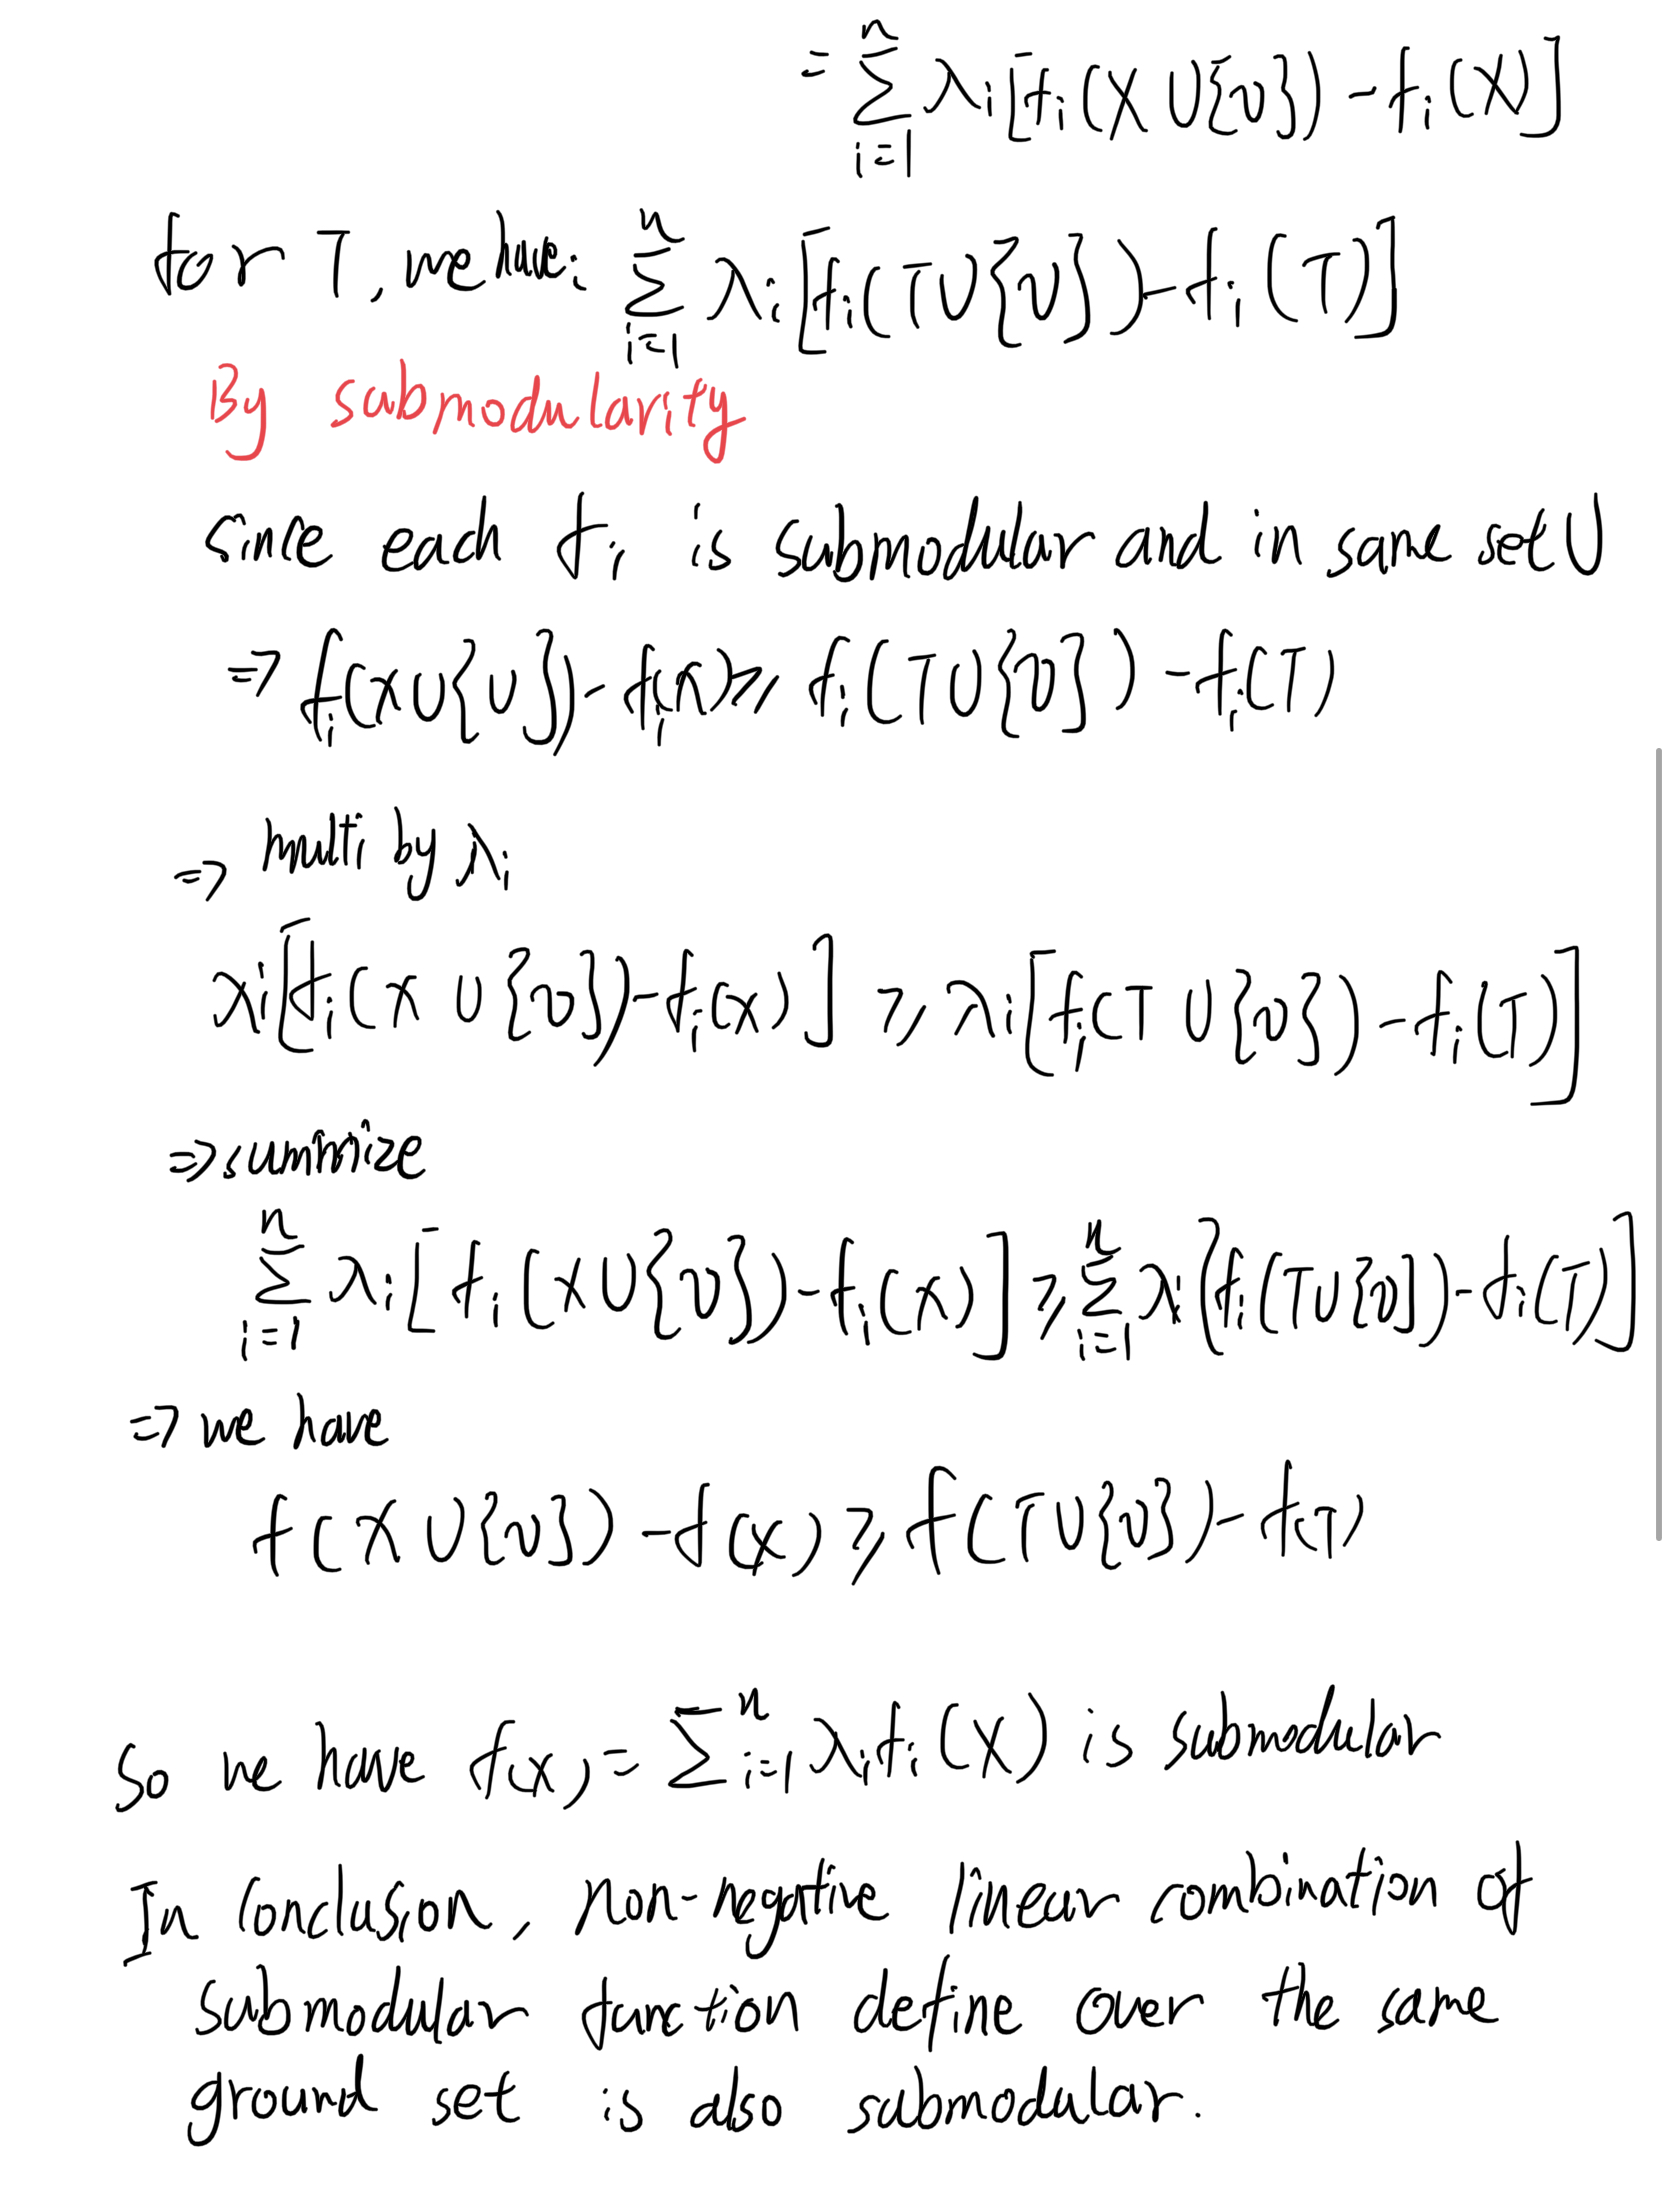 = \sum_{i=1}^{n} λ_i [f_i (X ∪ {v}) - f_i (X)]
for T, we have: \sum_{i=1}^{n} λ_i [f_i (T ∪ {v}) - f_i (T)]
By submodularity
since each f_i is submodular and in same set U
⇒ f_i (X ∪ {v}) - f_i (X) ≥ f_i (T ∪ {v}) - f_i (T)
⇒ multi by λ_i
λ_i [f_i (X ∪ {v}) - f_i (X)] ≥ λ_i [f_i (T ∪ {v}) - f_i (T)]
⇒ summize
\sum_{i=1}^{n} λ_i [f_i (X ∪ {v}) - f_i (X)] ≥ \sum_{i=1}^{n} λ_i [f_i (T ∪ {v}) - f_i (T)]
⇒ we have
f (X ∪ {v}) - f (X) ≥ f (T ∪ {v}) - f(T)
so we have f(X) = \sum_{i=1}^{n} λ_i f_i (X) is submodular
In conclusion, non-negtive linear combination of
submodular function define over the same
ground set is also submodular.